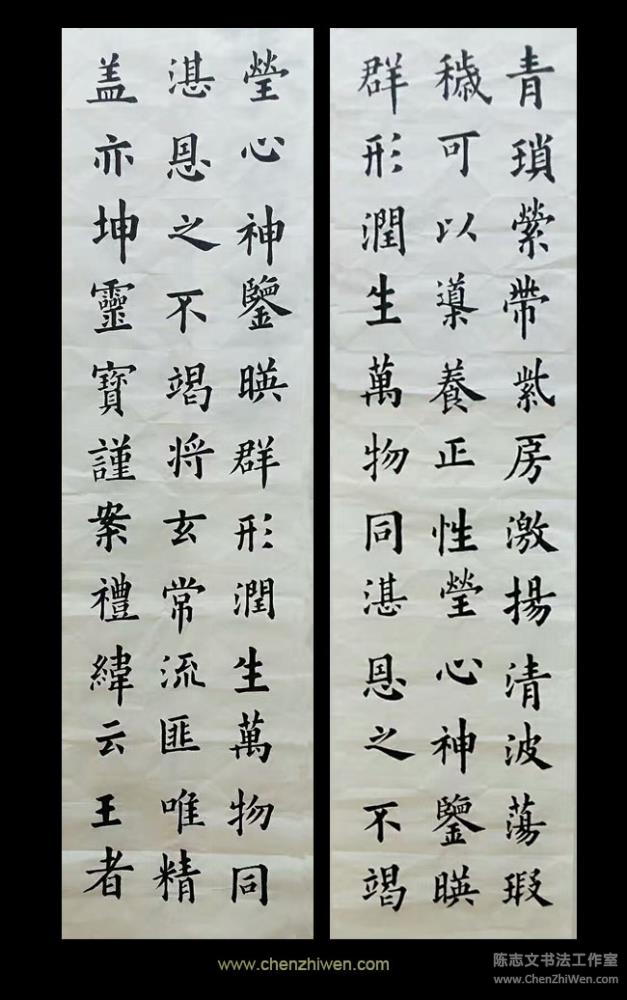 青瑣縈帶紫房激揚清波蕩瑕
穢可以導養正性瑩心神鑒暎
群形潤生萬物同湛恩之不竭
瑩心神鑒暎群形潤生萬物同
湛恩之不竭将玄常流匪唯精
盖亦坤靈寶謹案禮緯云王者
www.chenzhiwen.com
陈志文书法工作室
www.ChenZhiWen.com